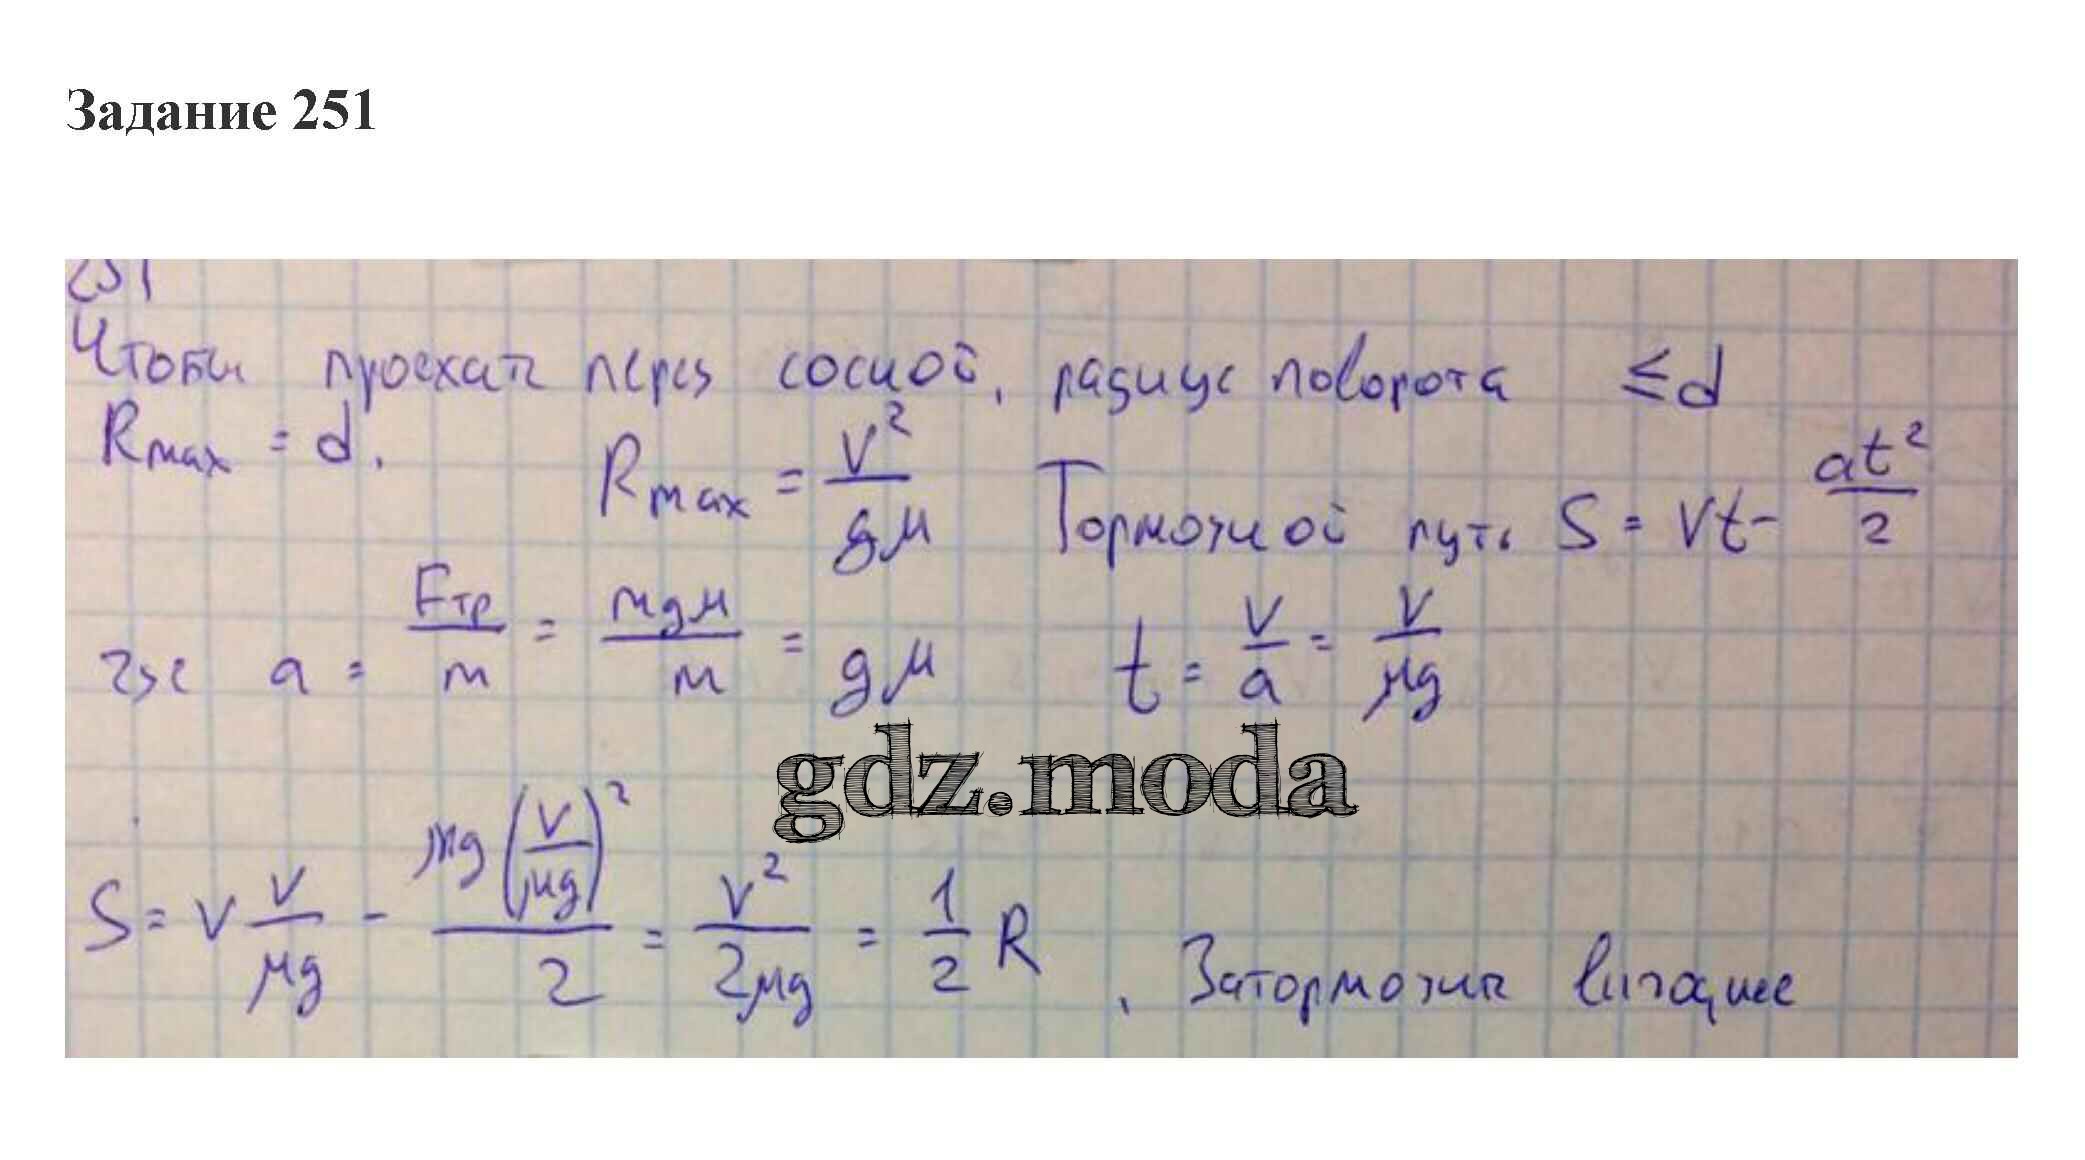 Задание 251
251
Чтобы проехать перед сосной, радиус поворота ≤ d
Rmax = d. Rmax = v²/gμ Тормозной путь S = vt - at²/2
где a = Fтр/m = mgμ/m = gμ t = v/a = v/μg
gdz.moda
S = v v/μg - μg(v/μg)²/2 = v²/2μg = 1/2 R, Затормозить выгоднее